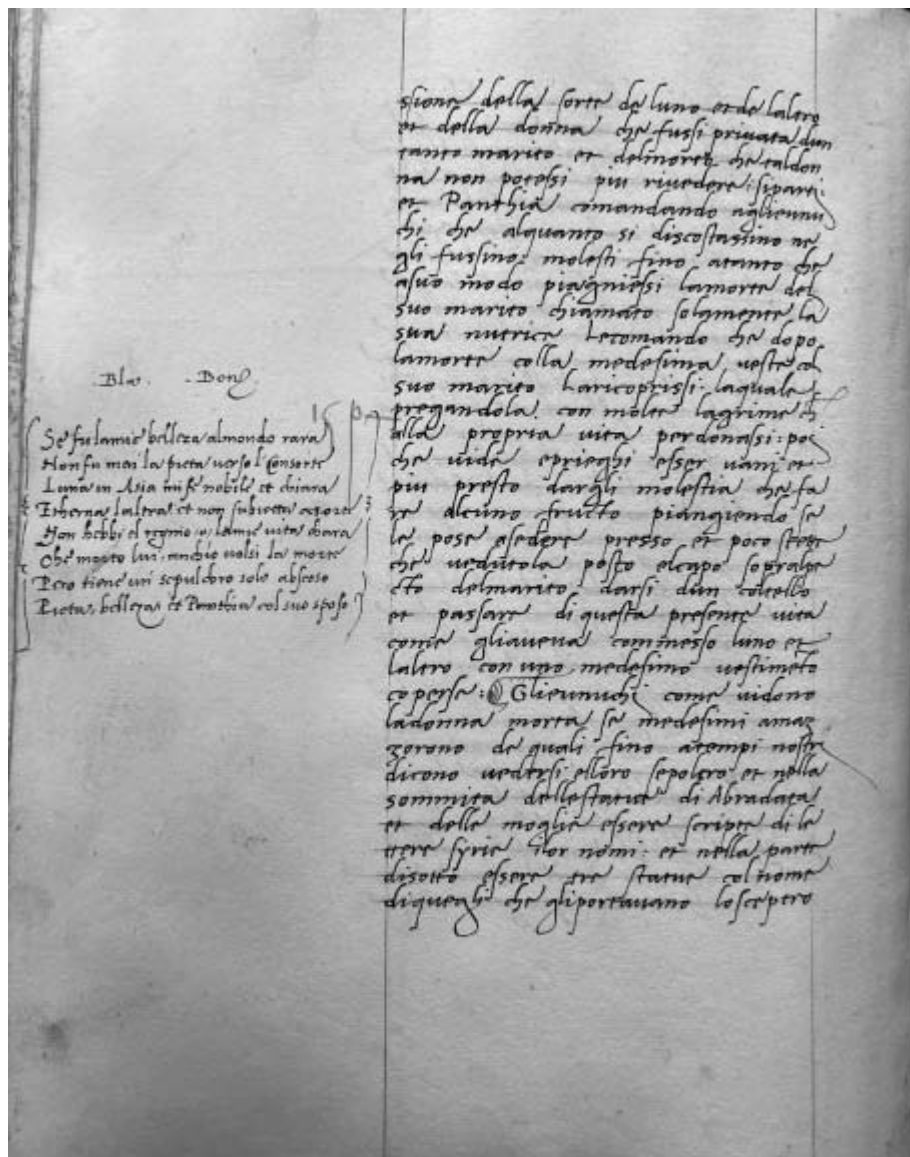 ssione della sorte de luno et de laltro
et della donna che fussi privata dun
tanto marito et delmorto che taldon
na non potessi piu rivedere: siparti:
et Panthia comandando aglieunu
chi che alquanto si discostassino ne
gli fussino molesti fino atanto che
asuo modo piagniessi lamorte del
suo marito chiamato solamente la
sua nutrice Lecomando che dopo
lamorte colla medesima veste col
suo marito Laricoprissi: laquale
pregandola con molte lagrime ch
alla propria vita perdonassi: poi
che vide eprieghi esser vani et
piu presto dargli molestia che fa
re alcuno fructo piangendo se
le pose asedere presso et poco stette
che vedutola posto elcapo sopralpe
cto delmarito darsi dun coltello
et passare di questa presente vita
come gliaveva commesso luno et
laltro con uno medesimo vestimēto
coperse: Glieunuchi come vidono
ladonna morta se medesimi amaz
zorono de quali fino atempi nostri
dicono vedersi elloro sepolcro et nella
sommita dellestatue di Abradata
et delle moglie essere scripte di le
ttere syrie ilor nomi: et nella parte
disotto essere tre statue colnome
diquegli che gliportavano losceptro
Bla. Bon
Se fu lamie belleza almondo rara
Non fu mai la pieta verso l'Consorte
Luna in Asia mi fe nobile et chiara
Etherna laltra et non subietta amorte
Non hebbi el regnio o lamie vita chara
Che morto lui anchio volsi la morte
Pero tiene un sepulchro solo abscoso
Pieta, belleza, et Panthia col suo sposo